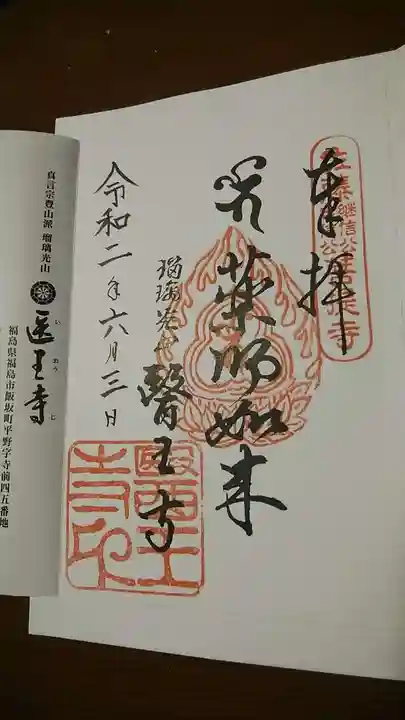 奉拝
薬師如来
瑠璃光山
醫王寺
令和二年六月三日
醫王寺印
真言宗豊山派 瑠璃光山
医王寺
いおうじ
福島県福島市飯坂町平野字寺前四五番地